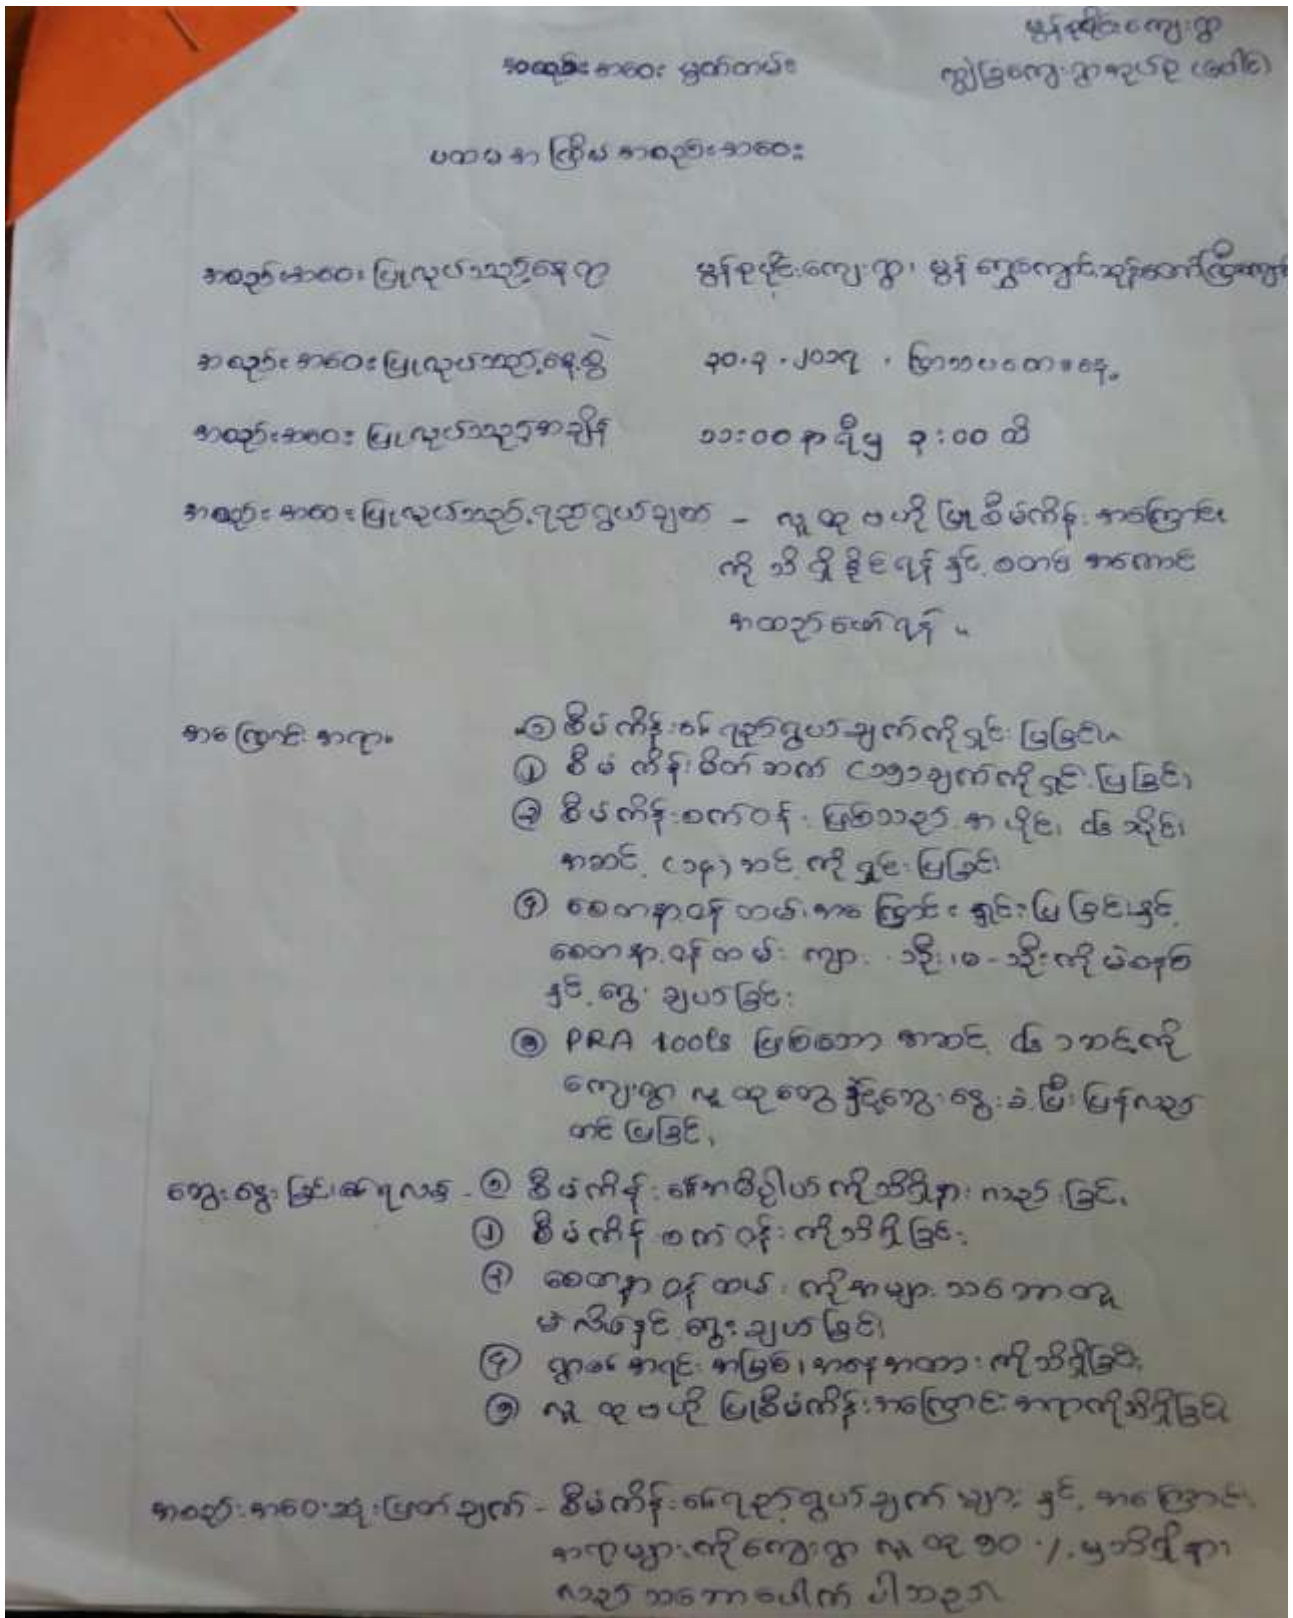 မွန်စုစိုင်းကျေးရွာ
အစည်းအဝေး မှတ်တမ်း
ကျွဲခြံကျေးရွာအုပ်စု (ပေါင်)
ပထမအကြိမ် အစည်းအဝေး
အစည်းအဝေး ပြုလုပ်သည့်နေရာ မွန်စုစိုင်းကျေးရွာ၊ မွန်
အစည်းအဝေးပြုလုပ်သည့်နေ့စွဲ ၃၀.၃.၂၀၁၇ . ကြာသပတေးနေ့
အစည်းအဝေး ပြုလုပ်သည့်အချိန် ၁၁:၀၀ နာရီမှ ၃:၀၀ ထိ
အစည်းအဝေးပြုလုပ်သည့်ရည်ရွယ်ချက် – လူထုဗဟိုပြုစီမံကိန်းအကြောင်း
ကိုသိရှိနိုင်ရန်နှင့် စတင် အကောင်
အထည်ဖော်ရန် ။
အကြောင်းအရာ ၁ စီမံကိန်း၏ ရည်ရွယ်ချက်ကိုရှင်းပြခြင်း
၂ စီမံကိန်းမိတ်ဆက် (၁၅)ချက်ကိုရှင်းပြခြင်း
၃ စီမံကိန်းစက်ဝန်းဖြစ်သည့် အပိုင်း ၄ပိုင်း
အဆင့် (၁၃) ဆင့်ကို ရှင်းပြခြင်း
၄ စေတနာ့ဝန်ထမ်းအကြောင်းရှင်းပြခြင်းနှင့်
စေတနာ့ဝန်ထမ်း ကျား-၁ဦး၊ မ-၁ဦးကိုမဲစနစ်
နှင့်ရွေးချယ်ခြင်း
၅ PRA tools ဖြစ်သော အဆင့် ၄ ဆင့်ကို
ကျေးရွာလူထုတွေနှင့်ဆွေးနွေးခဲ့ပြီးပြန်လည်
တင်ပြခြင်း
ဆွေးနွေးခြင်း၏ရလဒ် - ၁ စီမံကိန်း၏အဓိပ္ပါယ်ကိုသိရှိနားလည်ခြင်း
၂ စီမံကိန်းစက်ဝန်းကိုသိရှိခြင်း
၃ စေတနာ့ဝန်ထမ်းကိုအများသဘောတူ
မဲ ရွေးချယ်ခြင်း
၄ ရွာ၏ အရင်းအမြစ်၊ အနေအထားကိုသိရှိခြင်း
၅ လူထုဗဟိုပြုစီမံကိန်းအကြောင်းအရာကိုသိရှိခြင်း
အစည်းအဝေးဆုံးဖြတ်ချက် - စီမံကိန်း၏ရည်ရွယ်ချက်များနှင့် အကြောင်း
အရာများကိုကျေးရွာလူထု ၅၀ % မှသိရှိနား
လည်သဘောပေါက်ပါသည်။